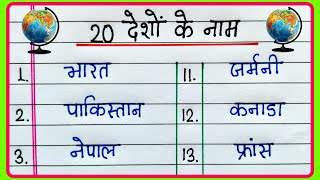 20 देशों के नाम
1. भारत 11. जर्मनी
2. पाकिस्तान 12. कनाडा
3. नेपाल 13. फ्रांस